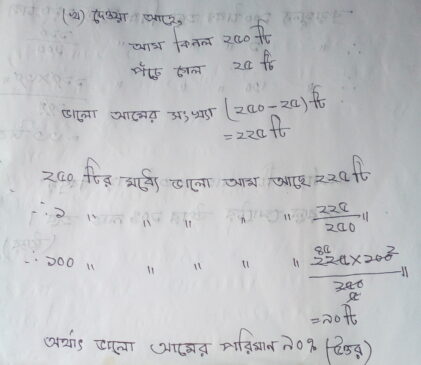 (খ) দেওয়া আছে,
আম কিনল ২৫০ টি
পঁচে গেল ২৫ টি
ভালো আমের সংখ্যা (২৫০-২৫) টি
=২২৫ টি
২৫০ টির মধ্যে ভালো আম আছে ২২৫ টি
∴ ১ " " " " " ২২৫/২৫০ "
∴ ১০০ " " " " " ২২৫×১০০/২৫০ "
=৯০ টি
অর্থাৎ ভালো আমের পরিমান ৯০% (উত্তর)